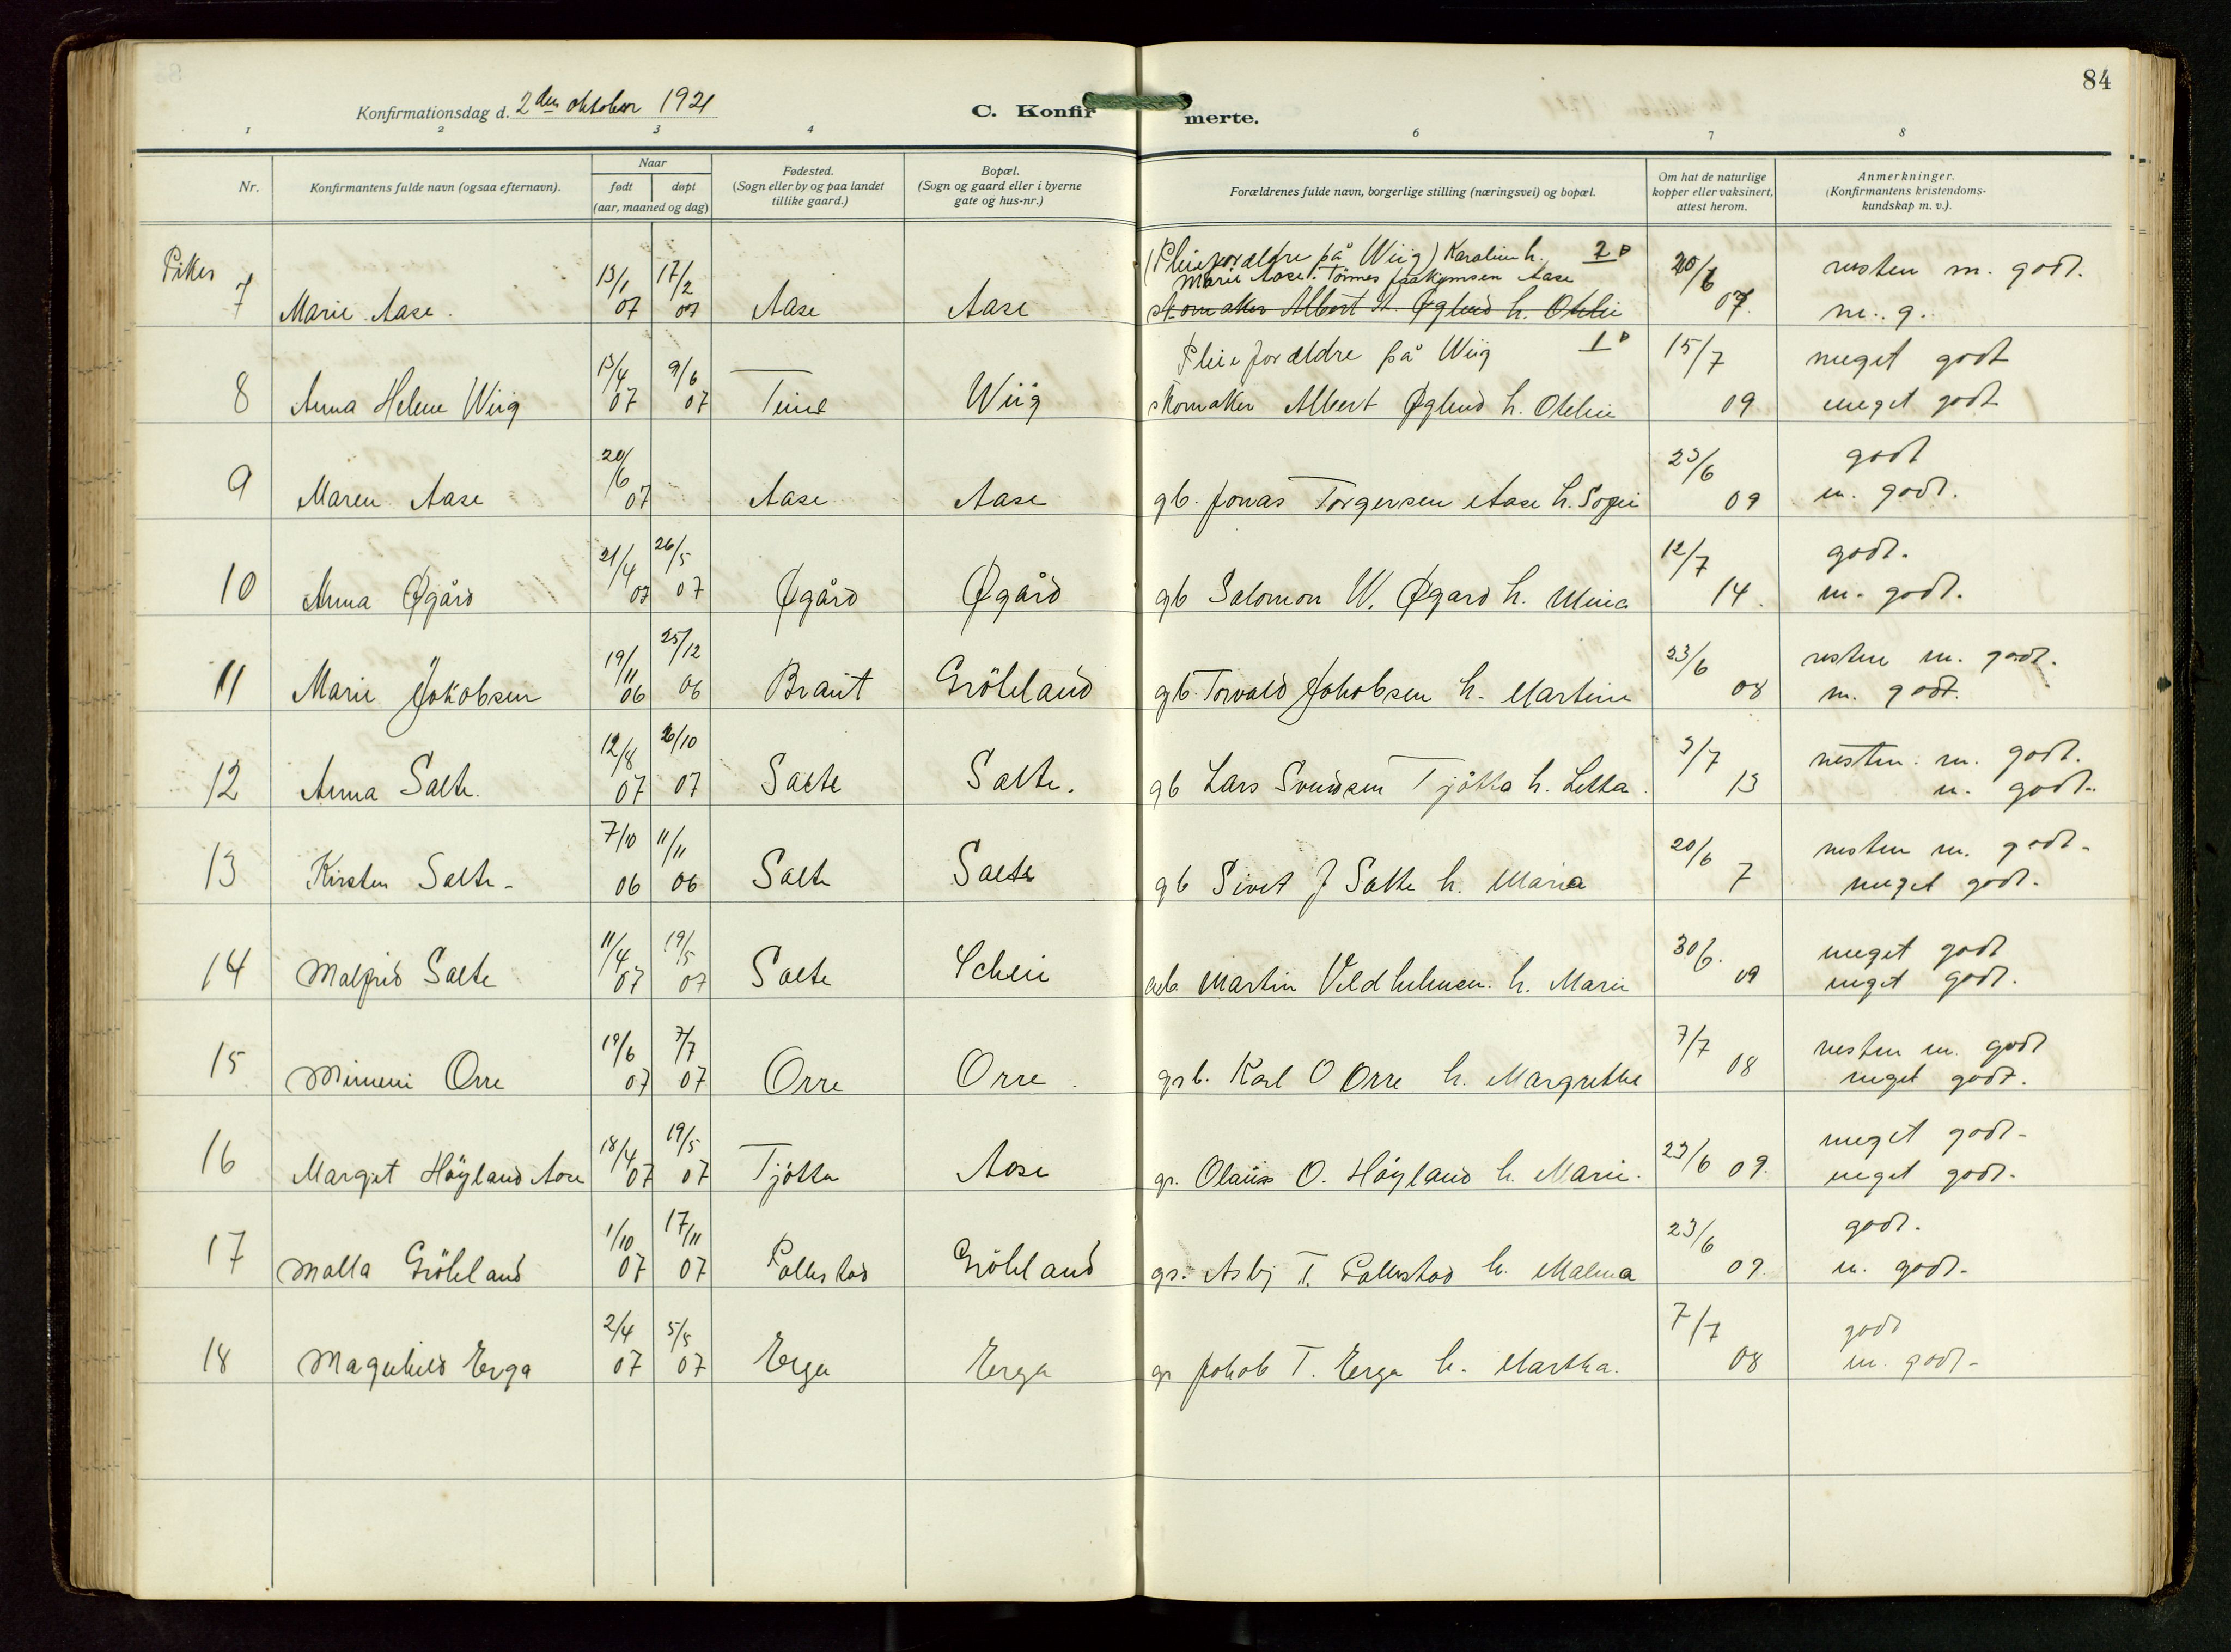 84
Konfirmationsdag d. 2den oktober 1921
C. Konfirmerte.
1 2 3 4 6 7 8
Nr.
Konfirmantens fulde navn (ogsaa efternavn).
Naar
født døpt
(aar, maaned og dag)
Fødested.
(Sogn eller by og paa landet
tillike gaard.)
Bopæl.
(Sogn og gaard eller i byerne
gate og hus-nr.)
Forældrenes fulde navn, borgerlige stilling (næringsvei) og bopæl.
Om hat de naturlige
kopper eller vaksinert,
attest herom.
Anmerkninger.
(Konfirmantens kristendoms-
kundskap m. v.).
Piker
(Pleieforældre på Wiig) Karoline h. 2
Marie Aase. Tönnes Aase
7 Marie Aase. 13/1 07 17/2 07 Aase Aase skomaker Albert A. Øglend h. Othlie 20/6 07 nesten m. godt.
m. g.
Pleieforældre på Wiig 1
8 Anna Helene Wiig 13/4 07 9/6 07 Time Wiig skomaker Albert Øglend h. Othlie 15/7 09 meget godt
meget godt
9 Maren Aase 20/6 07 Aase Aase gb. Jonas Torgersen Aase h. Sofie 23/6 09 godt
m. godt.
10 Anna Øgård 21/4 07 26/5 07 Øgård Øgård gb Salomon W. Øgard h. Mina 12/7 14. godt.
m. godt.
11 Marie Jakobsen 19/11 06 25/12 06 Braut Grödeland gb. Torvald Jakobsen h. Martine 23/6 08 nesten m. godt.
m. godt.
12 Anna Salte. 12/8 07 6/10 07 Salte Salte. gb Lars Svendsen Tjötta h. Letta. 3/7 13 nesten m. godt.
m. godt.
13 Kirsten Salte. 7/10 06 11/11 06 Salte Salte gb Sivert J Salte h. Maria 20/6 7 nesten m. godt.
meget godt.
14 Malfrid Salte 11/4 07 19/5 07 Salte Scheie Martin h. Marie 30/6. 09 meget godt
meget godt.
15 Mimmi Orre 19/6 07 7/7 07 Orre Orre. grb. Karl O Orre h. Margrethe 7/7 08 nesten m. godt
meget godt.
16 Margit Höyland Aase 18/4 07 19/5 07 Tjötta Aase gr. Olaus O. Höyland h. Marie. 23/6 09. meget godt.
meget godt.
17 Malla Grödeland 1/10 07 17/11 07 Pollestad Grödeland gr. Asbj T. Pollestad h. Malena 23/6 09. godt.
m. godt.
18 Magnhild Erga 2/4 07 5/5 07 Erga Erga gr Jakob T. Erga h. Martha. 7/7 08 godt
m. godt.